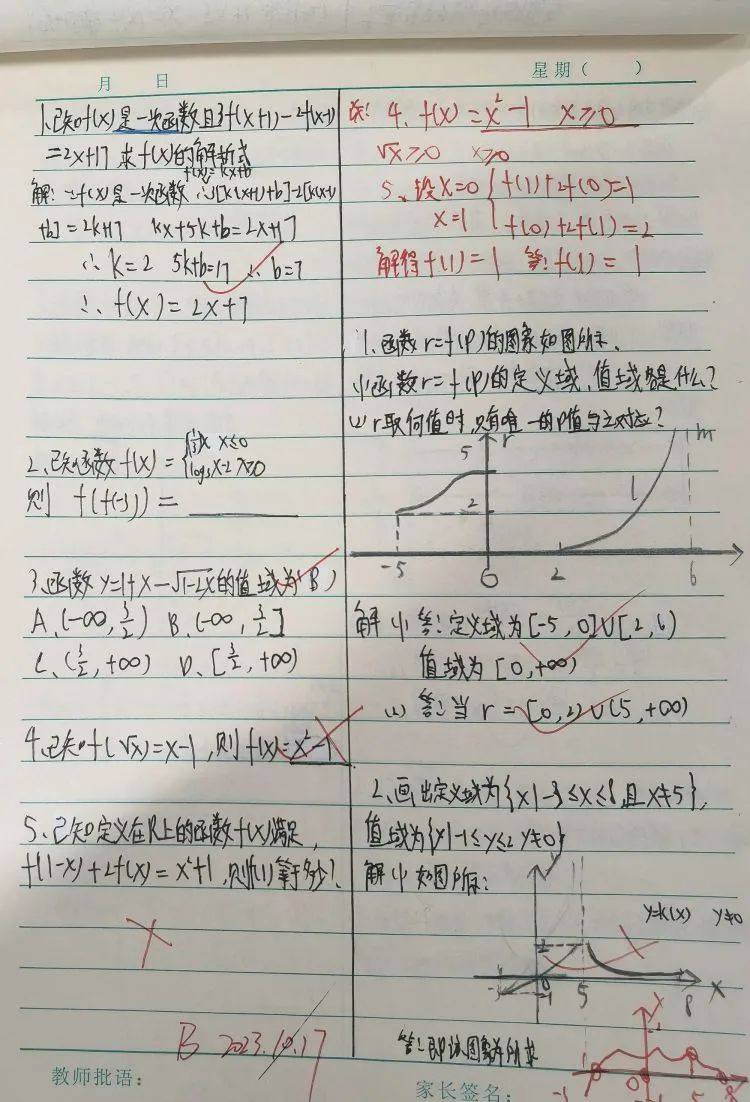 月 日
星期( )
1.已知f(x)是一次函数且3f(x+1)-2f(x-1)
=2x+17 求f(x)的解析式
f(x)=kx+b
解:∵f(x)是一次函数 ∴3[k(x+1)+b]-2[k(x-1)
+b]=2k+17 kx+5k+b=2x+17
∴k=2 5k+b=17 ∴b=7
∴f(x)=2x+7
2.已知函数f(x)={ x x≤0
log₃x-2 x>0
则 f(f(-3))=
3.函数y=1+x-√1-2x的值域为(B)
A.(-∞,3/2) B.(-∞,3/2]
C.(3/2,+∞) D.[3/2,+∞)
4.已知f(√x)=x-1,则f(x)=x²-1
5.已知定义在R上的函数f(x)满足,
f(1-x)+2f(x)=x²+1,则f(1)等于多少?
B 2023.10.17
教师批语:
4. f(x)=x²-1 x≥0
√x≥0 x≥0
5.设x=0 {f(1)+2f(0)=1
x=1 f(0)+2f(1)=2
解得f(1)=1 答:f(1)=1
1.函数r=f(p)的图象如图所示.
(1)函数r=f(p)的定义域,值域各是什么?
(2)r取何值时,只有唯一的p值与之对应?
5 r m
2 l
-5 O 2 6
解(1)答:定义域为[-5,0]∪[2,6)
值域为[0,+∞)
(2)答:当r=[0,2)∪(5,+∞)
2.画出定义域为{x|-3≤x≤8,且x≠5},
值域为{y|-1≤y≤2 y≠0}
解(1)如图所示:
y=k(x) y≠0
y
2
-3 0 5 8 x
-1
答:即该图象所求
家长签名: